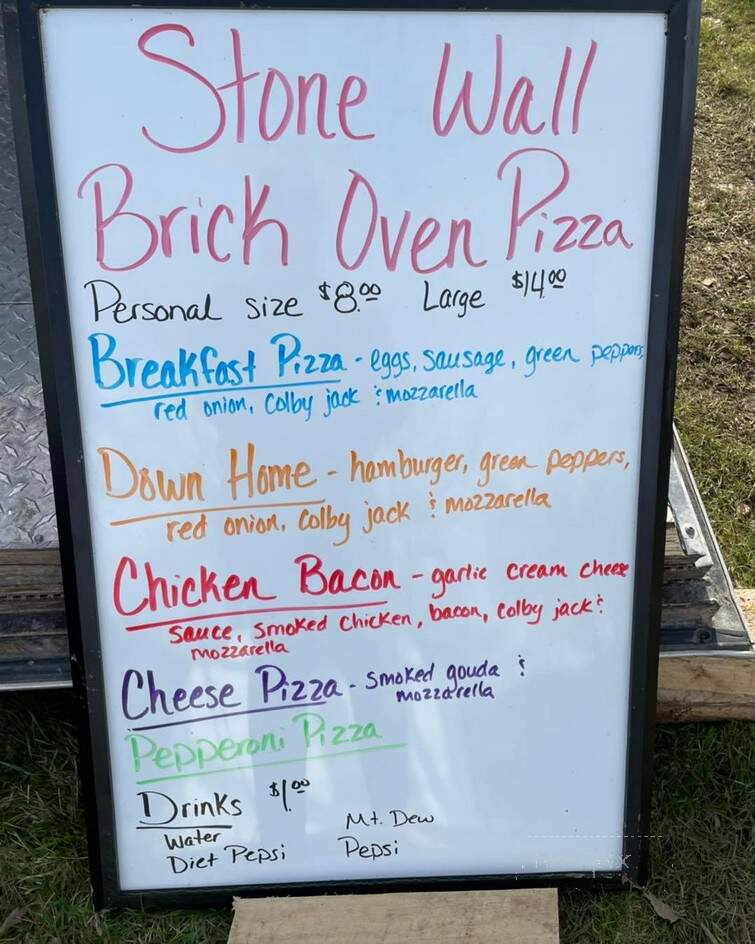 Stone Wall
Brick Oven Pizza
Personal size $8.00 Large $14.00
Breakfast Pizza - eggs, sausage, green peppers,
red onion, Colby jack & mozzarella
Down Home - hamburger, green peppers,
red onion, Colby jack & mozzarella
Chicken Bacon - garlic cream cheese
sauce, smoked chicken, bacon, Colby jack &
mozzarella
Cheese Pizza - smoked gouda &
mozzarella
Pepperoni Pizza
Drinks $1.00
Water Mt. Dew
Diet Pepsi Pepsi